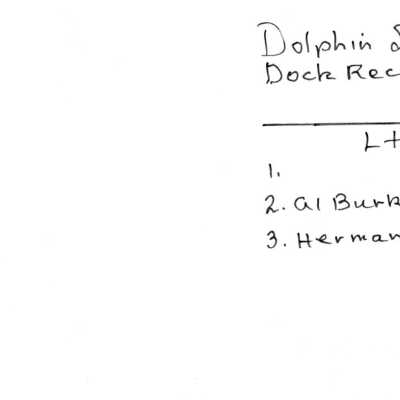 Dolphin
Dock Rec
L+
1.
2. Al Burk
3. Herman